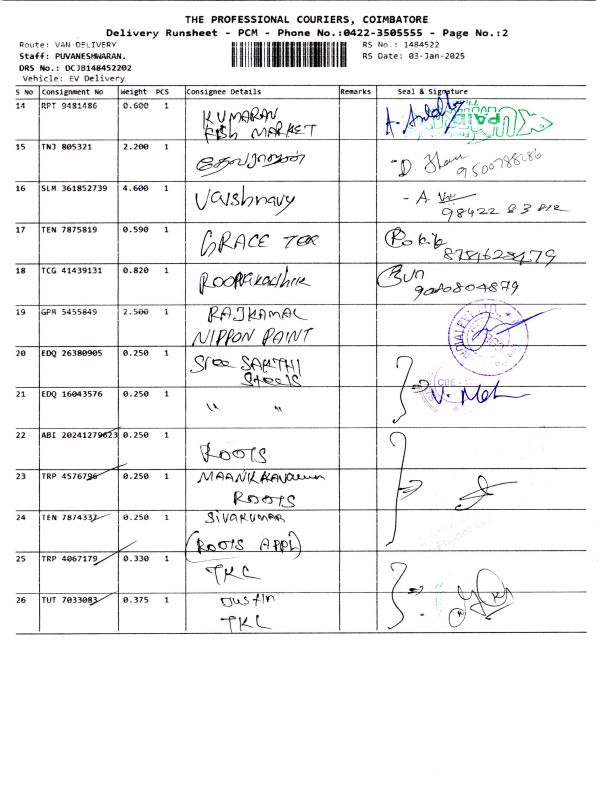 THE PROFESSIONAL COURIERS, COIMBATORE
Delivery Runsheet - PCM - Phone No.:0422-3505555 - Page No.:2
Route: VAN DELIVERY RS No.: 1484522
Staff: PUVANESHWARAN. RS Date: 03-Jan-2025
DRS No.: DCJB148452202
Vehicle: EV Delivery
S No Consignment No Weight PCS Consignee Details Remarks Seal & Signature
14 RPT 9481486 0.600 1 KUMARAN
FISH MARKET
15 TNJ 805321 2.200 1 தேவராஜன் 9500788286
16 SLM 361852739 4.600 1 Vaishnavy
98422 83812
17 TEN 7875819 0.590 1 GRACE TEX
8754628479
18 TCG 41439131 0.820 1
9080804879
19 GPM 5455849 2.500 1 RAJKAMAL
NIPPON PAINT
20 EDQ 26380905 0.250 1 Sree SAKTHI
Steels
21 EDQ 16043576 0.250 1 " "
22 ABI 20241279623 0.250 1
ROOTS
23 TRP 4576796 0.250 1
ROOTS
24 TEN 7874337 0.250 1 SIVAKUMAR
(ROOTS APPL)
25 TRP 4067179 0.330 1
TKC
26 TUT 7033083 0.375 1 Justin
TKC